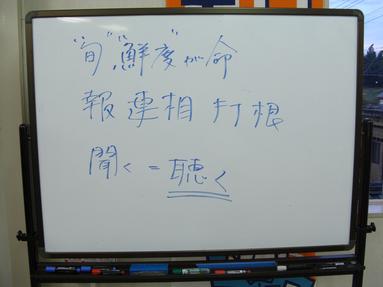 "旬""鮮度"が命
報連相 打根
聞く = 聴く